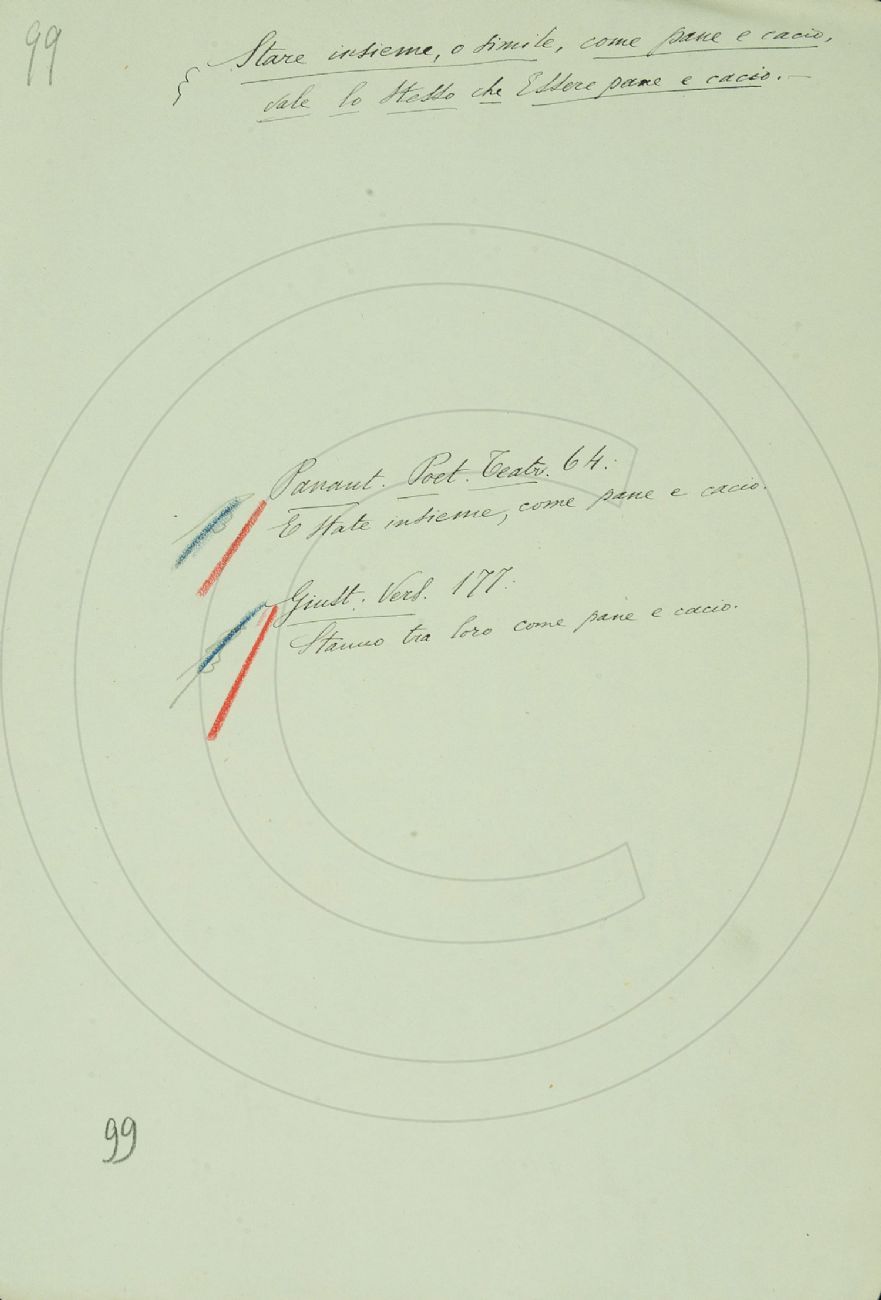 99
Stare insieme, o simile, come pane e cacio,
vale lo stesso che Essere pane e cacio. —
Panant. Poet. Teatr. 64:
E state insieme, come pane e cacio.
Giust. Vers. 177:
Stanno tra loro come pane e cacio.
99